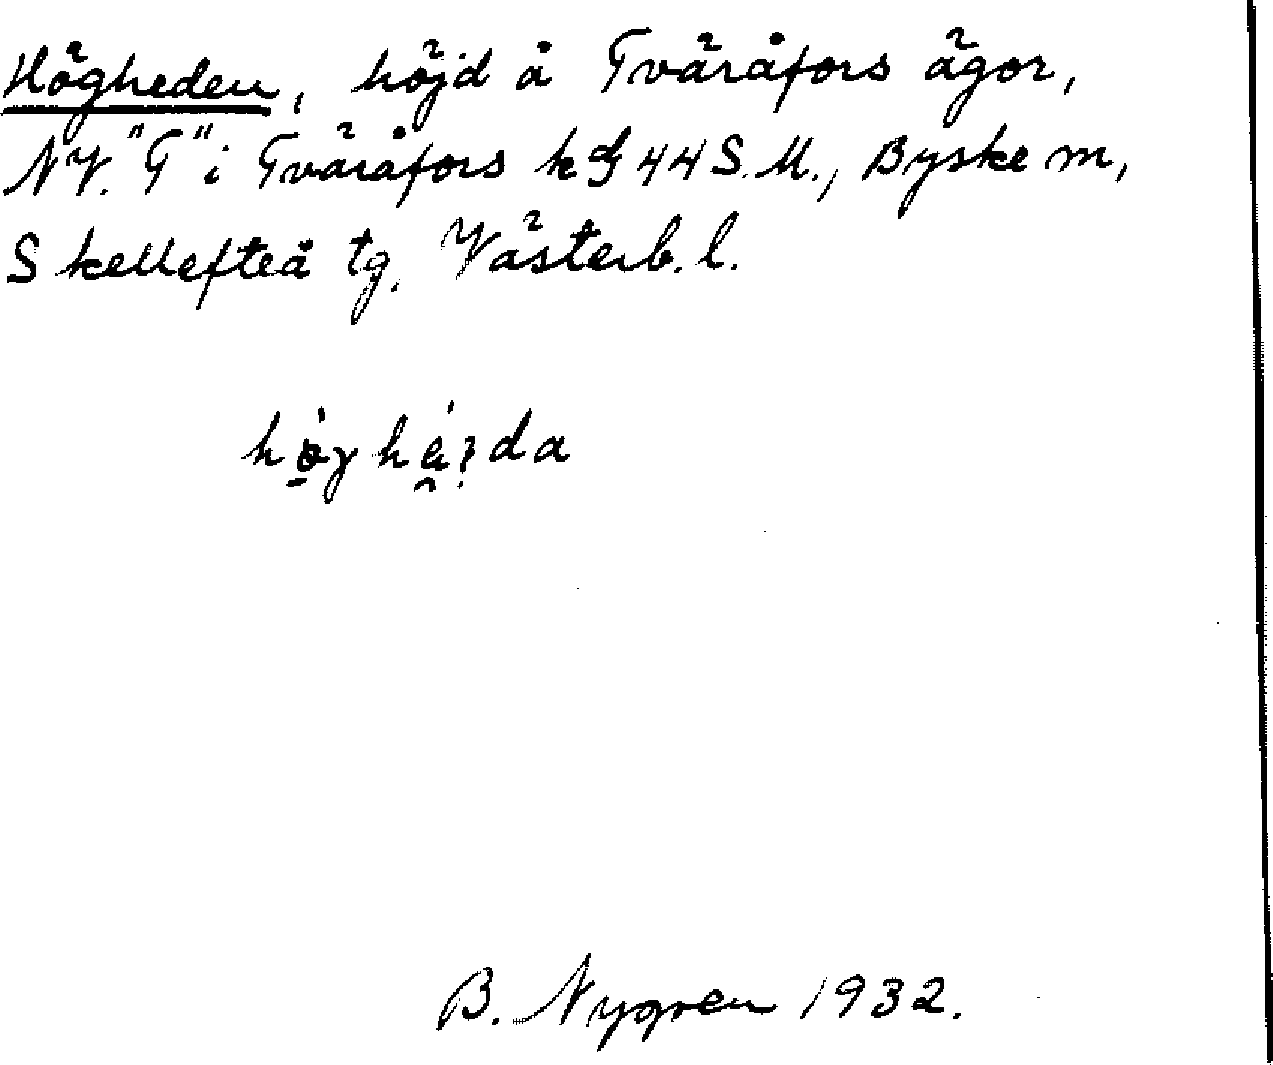 Högheden, höjd å Tväråfors ägor,
NV. "T" i Tväråfors k 44 S.M., Byske m,
Skellefteå tg. Västerb. l.
B. Nygren 1932.